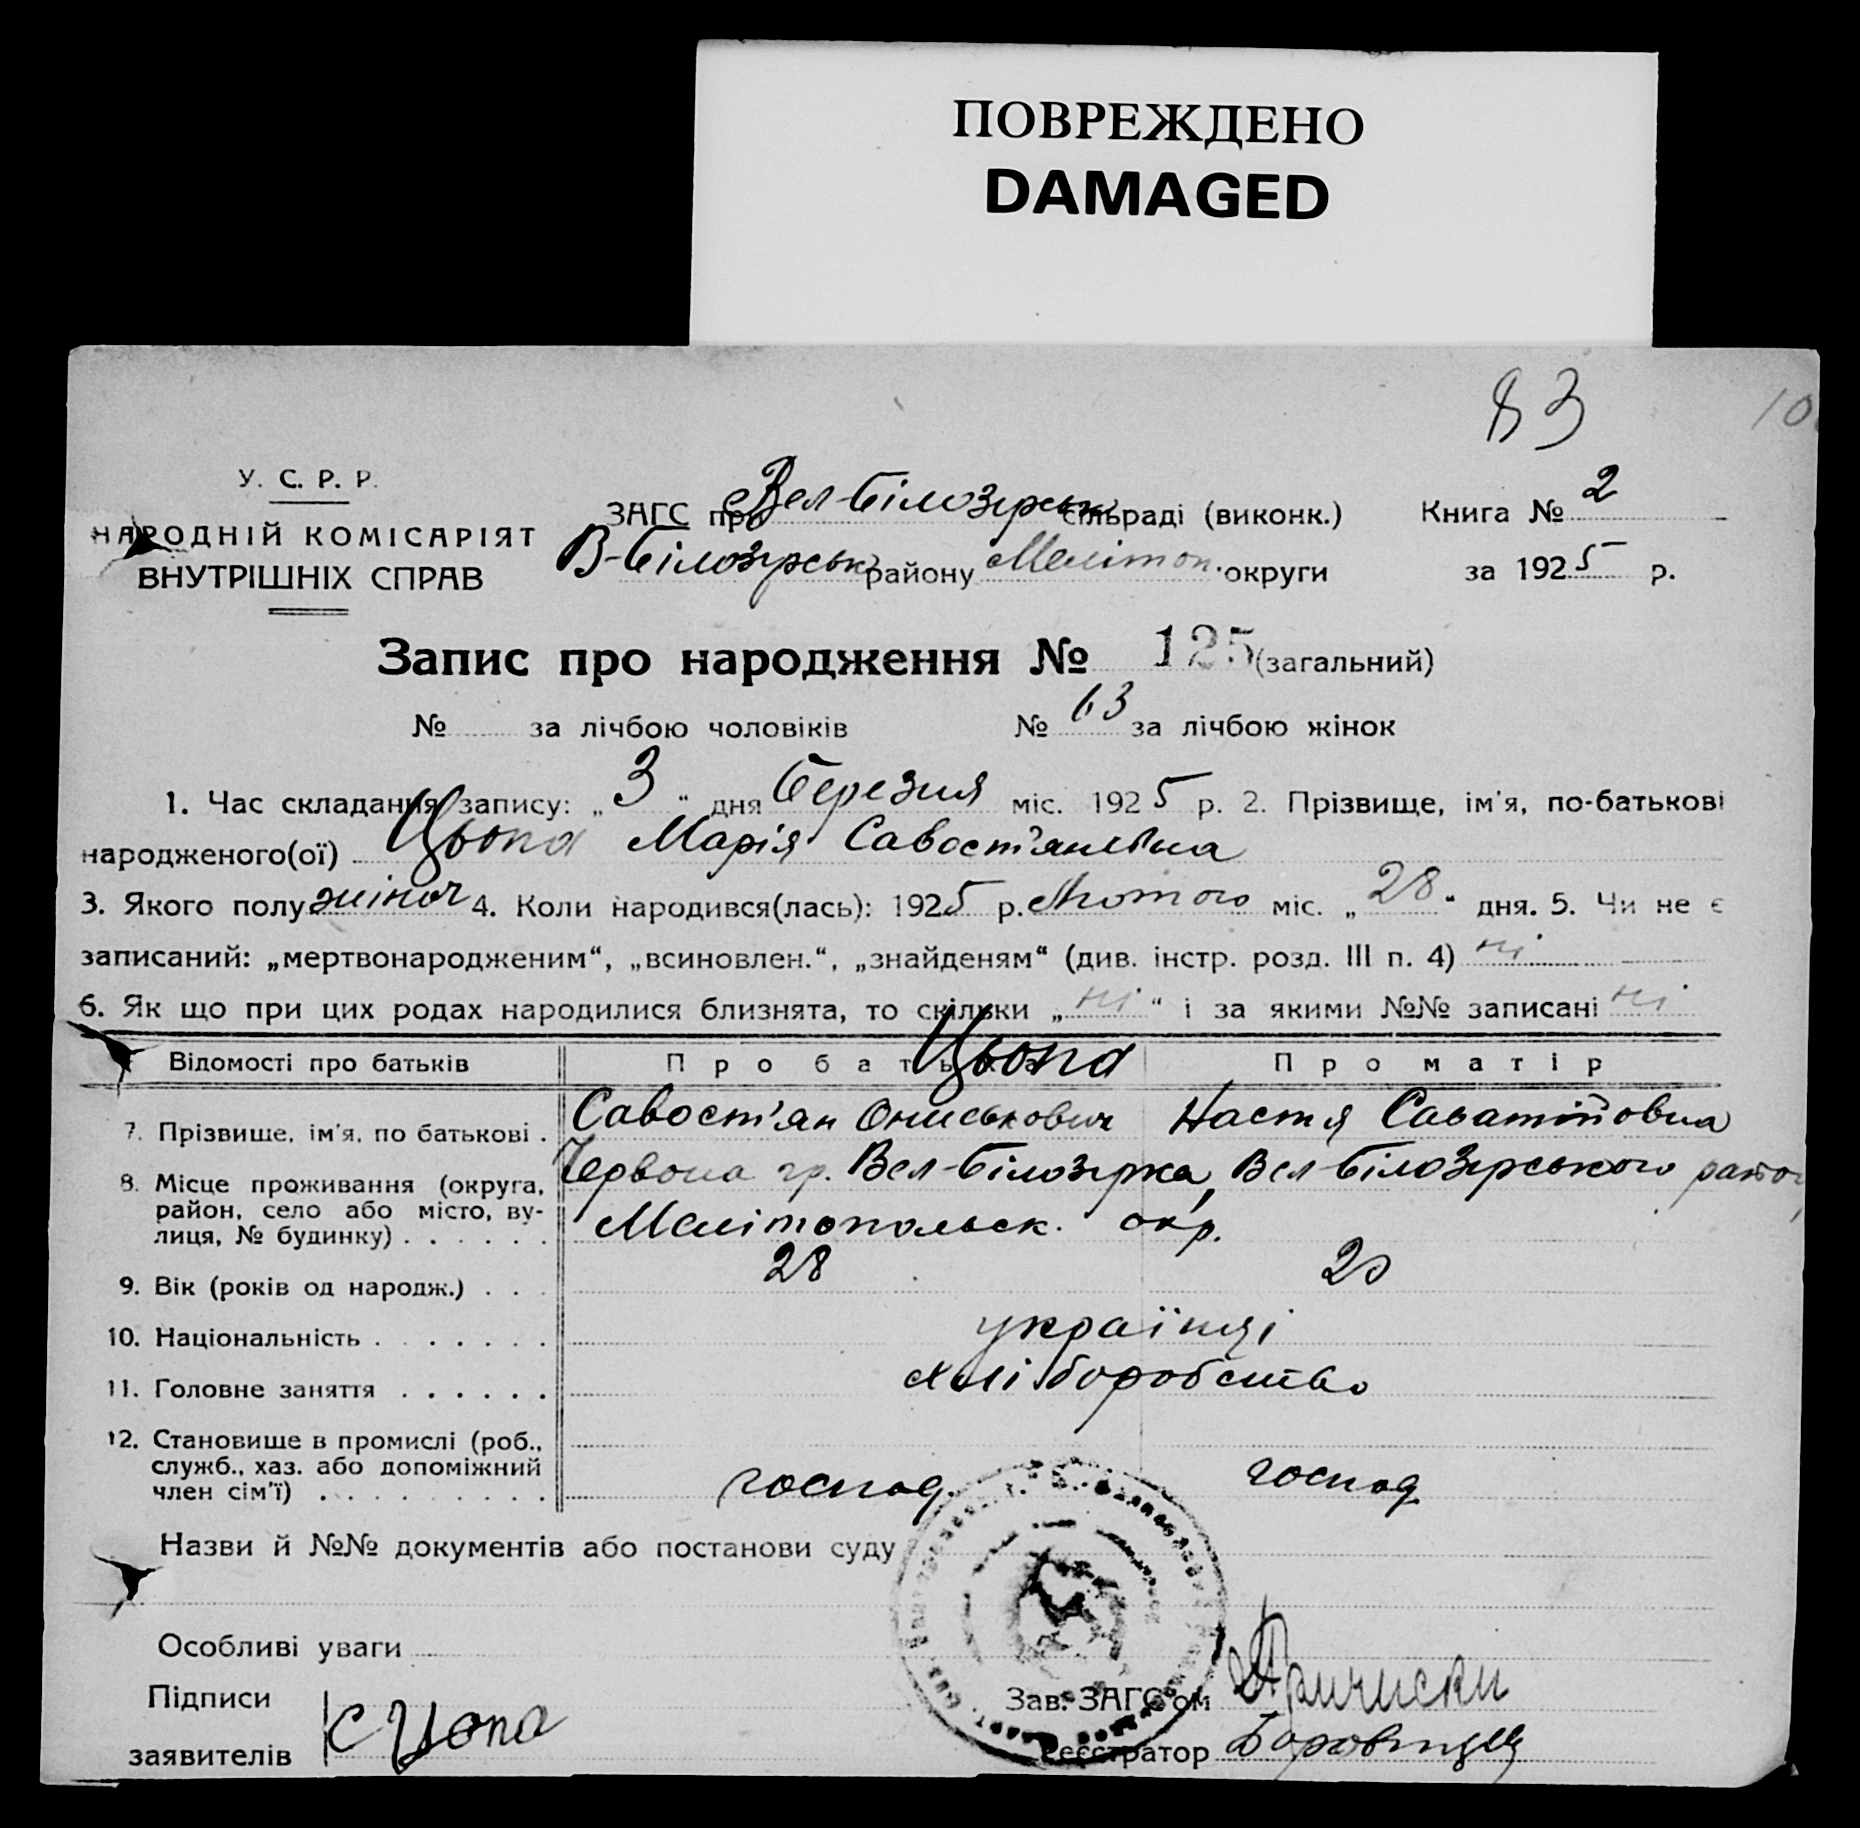 ПОВРЕЖДЕНО
DAMAGED
83
10
У. С. Р. Р.
НАРОДНІЙ КОМІСАРІЯТ
ВНУТРІШНІХ СПРАВ
ЗАГС при Вел-Білозірськ сільраді (виконк.) Книга № 2
В-Білозірськ району Мелітоп. округи за 1925 р.
Запис про народження № 125 (загальний)
№ за лічбою чоловіків № 63 за лічбою жінок
1. Час складання запису: „ 3 “ дня березня міс. 1925 р. 2. Прізвище, ім'я, по-батькові
народженого(ої) Цьопа Марія Савост'янівна
3. Якого полу жіноч 4. Коли народився(лась): 1925 р. Лютого міс. „ 28 “ дня. 5. Чи не є
записаний: „мертвонародженим“, „всиновлен.“, „знайденям“ (див. інстр. розд. III п. 4) ні
6. Як що при цих родах народилися близнята, то скільки „ ні “ і за якими №№ записані ні
Відомості про батьків Про батька Про матір
Цьопа
7. Прізвище, ім'я, по батькові . Савост'ян Ониськович Настя Саватіївна
8. Місце проживання (округа, район, село або місто, вулиця, № будинку) . . . . . . Червона гр. Вел-Білозірка, Вел-Білозірського
Мелітопольск. окр.
9. Вік (років од народж.) . . . 28 20
10. Національність . . . . . . . українці
11. Головне заняття . . . . . . хліборобство
12. Становище в промислі (роб., служб., хаз. або допоміжний член сім'ї) . . . . . . . . . господ. господ.
Назви й №№ документів або постанови суду
Особливі уваги
Підписи
заявителів С Цопа
Зав. ЗАГС'ом
Реєстратор